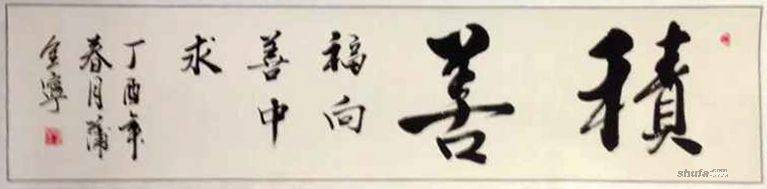 積善
福向
善中
求
丁酉年
春月蒲
金寧
shufa.com